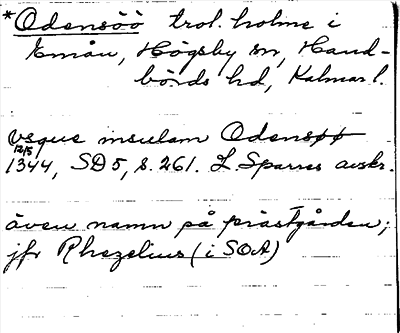 *Odensöö trol. holme i
Emån, Högsby sn, Hand-
börds hd, Kalmar l.
vsque insulam Odensøø
12/5
1344, SD 5, s. 261. L Sparres avskr.
även namn på prästgården;
jfr Rhezelius (i SOÄ)